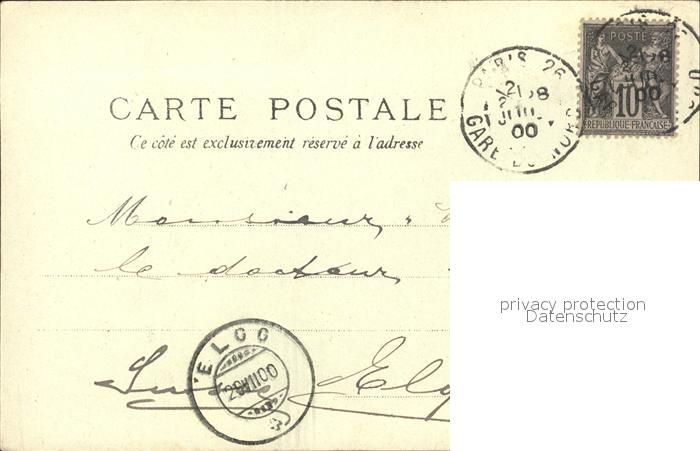 CARTE POSTALE
Ce côté est exclusivement réservé à l'adresse
PARIS 26
GARE DU NORD
JUIL
00
POSTE
10
REPUBLIQUE FRANÇAISE
Monsieur
le docteur
ELGG
privacy protection
Datenschutz